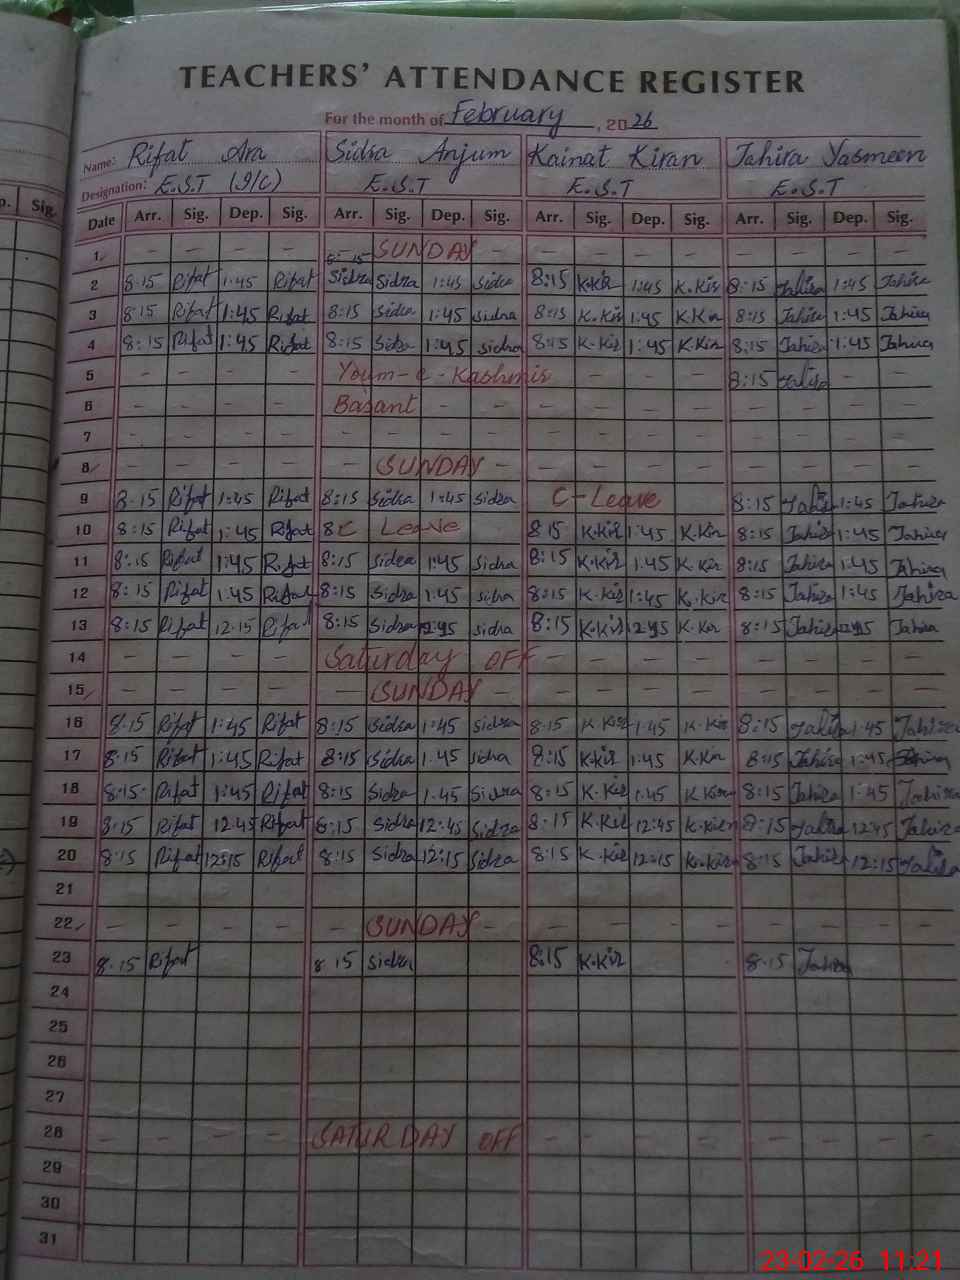 TEACHERS' ATTENDANCE REGISTER
For the month of February, 2026
Name: Rifat Ara Sidra Anjum Kainat Kiran Tahira Yasmeen
Designation: E.S.T (I/C) E.S.T E.S.T E.S.T
p. Sig. Date Arr. Sig. Dep. Sig. Arr. Sig. Dep. Sig. Arr. Sig. Dep. Sig. Arr. Sig. Dep. Sig.
1 - - - - 8:15 SUNDAY - - - - - - - - -
2 8:15 Rifat 1:45 Rifat Sidra Sidra 1:45 Sidra 8:15 K.Kir 1:45 K.Kir 8:15 Tahira 1:45 Tahira
3 8:15 Rifat 1:45 Rifat 8:15 Sidra 1:45 Sidra 8:15 K.Kir 1:45 K.Kir 8:15 Tahira 1:45 Tahira
4 8:15 Rifat 1:45 Rifat 8:15 Sidra 1:45 Sidra 8:15 K.Kir 1:45 K.Kir 8:15 Tahira 1:45 Tahira
5 - - - - Youm-e-Kashmir - - - 8:15 Tahira - -
6 - - - - Basant - - - - - - - - - -
7 - - - - - - - - - - - - - - - -
8 - - - - - SUNDAY - - - - - - - - -
9 8:15 Rifat 1:45 Rifat 8:15 Sidra 1:45 Sidra C-Leave 8:15 Tahira 1:45 Tahira
10 8:15 Rifat 1:45 Rifat 8 C Leave 8:15 K.Kir 1:45 K.Kir 8:15 Tahira 1:45 Tahira
11 8:15 Rifat 1:45 Rifat 8:15 Sidra 1:45 Sidra 8:15 K.Kir 1:45 K.Kir 8:15 Tahira 1:45 Tahira
12 8:15 Rifat 1:45 Rifat 8:15 Sidra 1:45 Sidra 8:15 K.Kir 1:45 K.Kir 8:15 Tahira 1:45 Tahira
13 8:15 Rifat 12:15 Rifat 8:15 Sidra Sidra 8:15 K.Kir K.Kir 8:15 Tahira Tahira
14 - - - - Saturday OFF - - - - - - -
15 - - - - - SUNDAY - - - - - - - - -
16 8:15 Rifat 1:45 Rifat 8:15 Sidra 1:45 Sidra 8:15 K.Kir 1:45 K.Kir 8:15 Tahira 1:45 Tahira
17 8:15 Rifat 1:45 Rifat 8:15 Sidra 1:45 Sidra 8:15 K.Kir 1:45 K.Kir 8:15 Tahira 1:45 Tahira
18 8:15 Rifat 1:45 Rifat 8:15 Sidra 1:45 Sidra 8:15 K.Kir 1:45 K.Kiran 8:15 Tahira 1:45 Tahira
19 8:15 Rifat 12:45 Rifat 8:15 Sidra 12:45 Sidra 8:15 K.Kir 12:45 K.Kiran 8:15 Tahira 12:45 Tahira
20 8:15 Rifat 12:15 Rifat 8:15 Sidra 12:15 Sidra 8:15 K.Kir 12:15 K.Kiran 8:15 Tahira 12:15 Tahira
21
22 - - - - - SUNDAY - - - - - - - - -
23 8:15 Rifat 8:15 Sidra 8:15 K.Kir 8:15 Tahira
24
25
26
27
28 - - - - SATURDAY OFF - - - - - - - -
29
30
31
23-02-26 11:21